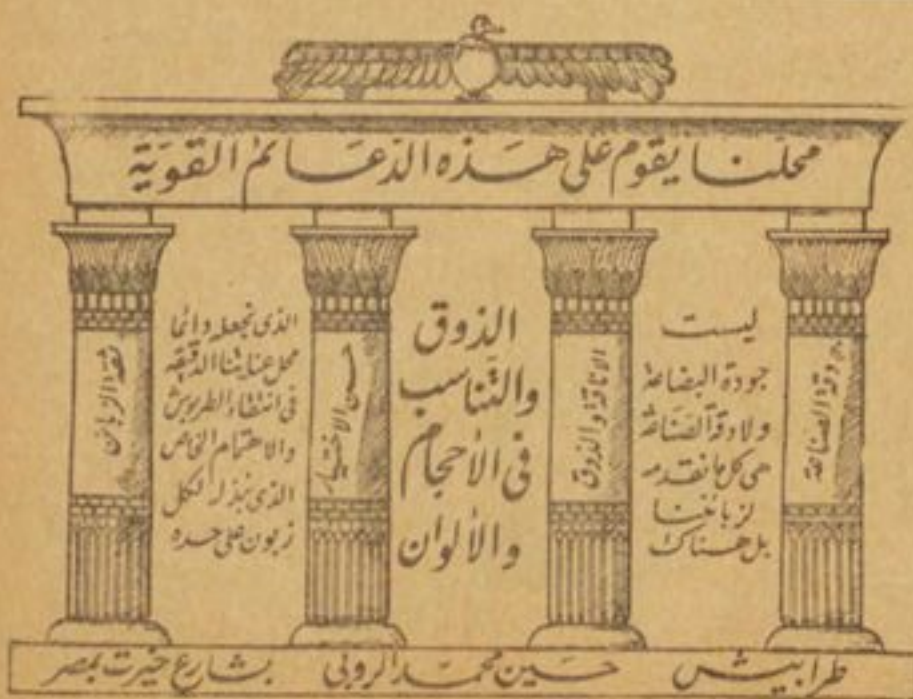 محلنا يقوم على هذه الدعائم القوية
دقة الصناعة
ليست
جودة البضاعة
ولا دقة الصناعة
هى كل ما نقدمه
لزبائننا
بل هناك
الأناقة والذوق
الذوق
والتناسب
فى الأحجام
والألوان
حسن الاختيار
الذى نجعله دائما
محل عنايتنا الدقيقة
فى انتقاء الطربوش
والاهتمام الخاص
الذى نبذله لكل
زبون على حده
ثقة الزبائن
طرابيش حسين محمد الروبى بشارع خيرت بمصر